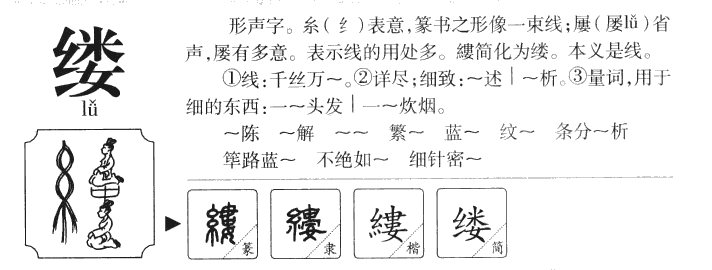 缕
lǚ
形声字。糸(纟)表意,篆书之形像一束线;屢(屡lǚ)省
声,屡有多意。表示线的用处多。縷简化为缕。本义是线。
①线:千丝万～。②详尽;细致:～述｜～析。③量词,用于
细的东西:一～头发｜一～炊烟。
～陈 ～解 ～～ 繁～ 蓝～ 纹～ 条分～析
筚路蓝～ 不绝如～ 细针密～
縷 篆
縷 隶
縷 楷
缕 简